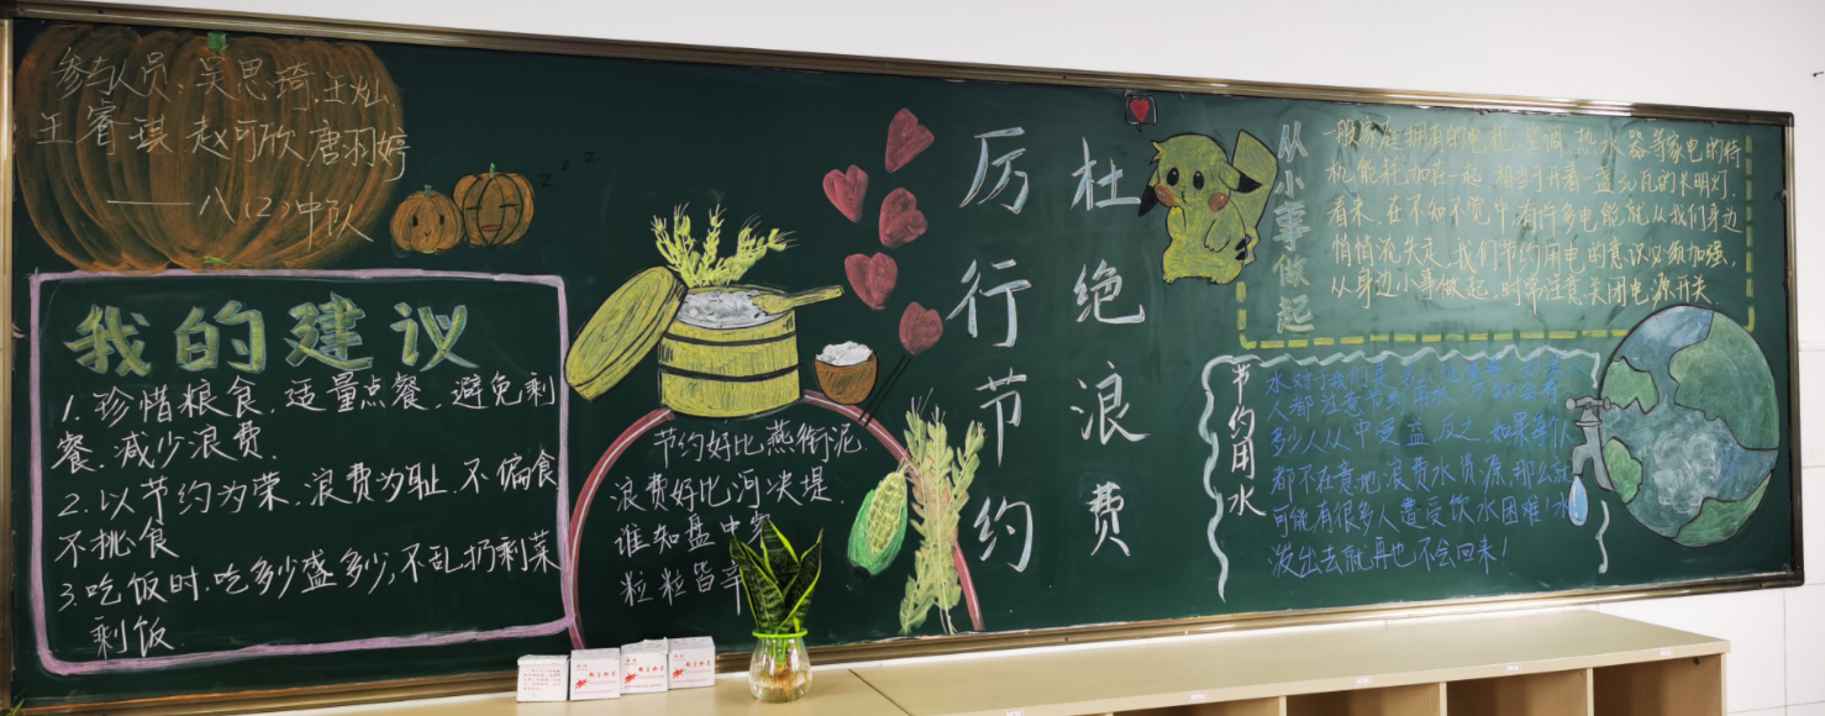 参与人员、吴思琦.王灿.
王睿琪 赵可欣 唐羽婷
——八(2)中队
我的建议
1.珍惜粮食.适量点餐.避免剩
餐.减少浪费.
2.以节约为荣.浪费为耻.不偏食
不挑食
3.吃饭时.吃多少盛多少,不乱扔剩菜
剩饭.
节约好比燕衔泥.
浪费好比河决堤.
谁知盘中
粒粒皆辛
厉行节约
杜绝浪费
从小事做起
一般家庭拥有的电视.空调.热水器等家电的待
机能耗加在一起.相当于开着一盏30瓦的长明灯.
看来.在不知不觉中.有许多电能就从我们身边
悄悄流失走.我们节约用电的意识必须加强,
从身边小事做起.时常注意关闭电源开关.
节约用水
水对于我们
人都注意节约用水
多少人从中受益.反之.如果每个人
都不在意地浪费水资源.那么就
可能有很多人遭受饮水困难!水
泼出去就再也不会回来!